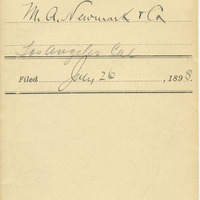 M. A. Newmark & Co
Los Angeles Cal
Filed July 26, 1898.